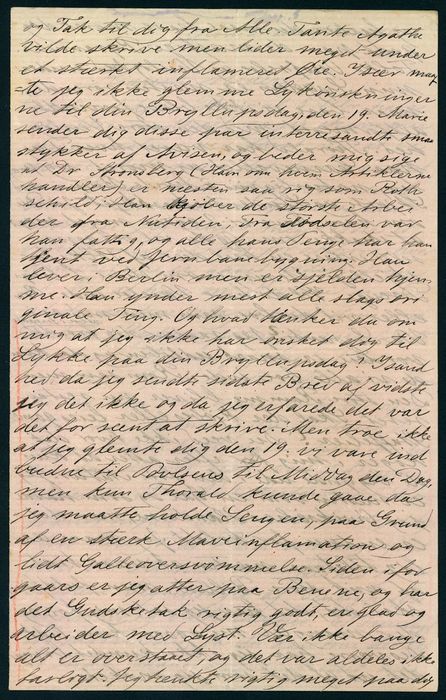 og Tak til dig fra Alle. Tante Agathe
vilde skrive men lider meget under
et stærkt inflameret Øie. Især maa
te jeg ikke glemme Lykønskninger
ne til din Bryllupsdag, den 19. Marie
sender dig disse par interresandte smaa
stykker af Avisen, og beder mig sige
at Dr Stronsberg (Han om hvem Artiklerne
handler) er næsten saa rig som Roth
schild; Han kjøber de størst Arbei
der fra Nutiden, Fra Fødselen var
han fattig, og alle hans Penge har han
tjent ved Jernbanebygning. Han
lever i Berlin men er sjelden hjem
me. Han ynder mest alle slags ori
ginale Ting. Og hvad tænker du om
mig at jeg ikke har ønsket dig til
Lykke paa din Bryllupsdag? Isand
hed da jeg sendte sidste Brev af vidste
jeg det ikke og da jeg erfarede det var
det for seent at skrive. Men troe ikke
at jeg glemte dig den 19. vi vare ind
budne til Bolsens til Middag den Dag,
men kun Thorald kunde gaae da
jeg maatte holde Sengen, paa Grund
af en stærk Maveinflamation og
lidt Galleoversvimmelse. Siden ifor
gaars er jeg atter paa Benene, og har
det Gudsketak rigtig godt, er glad og
arbeider med Lyst. Vær ikke bange
alt er overstaaet, og det var aldeles ikke
farligt. Jeg tænkte rigtig meget paa dig